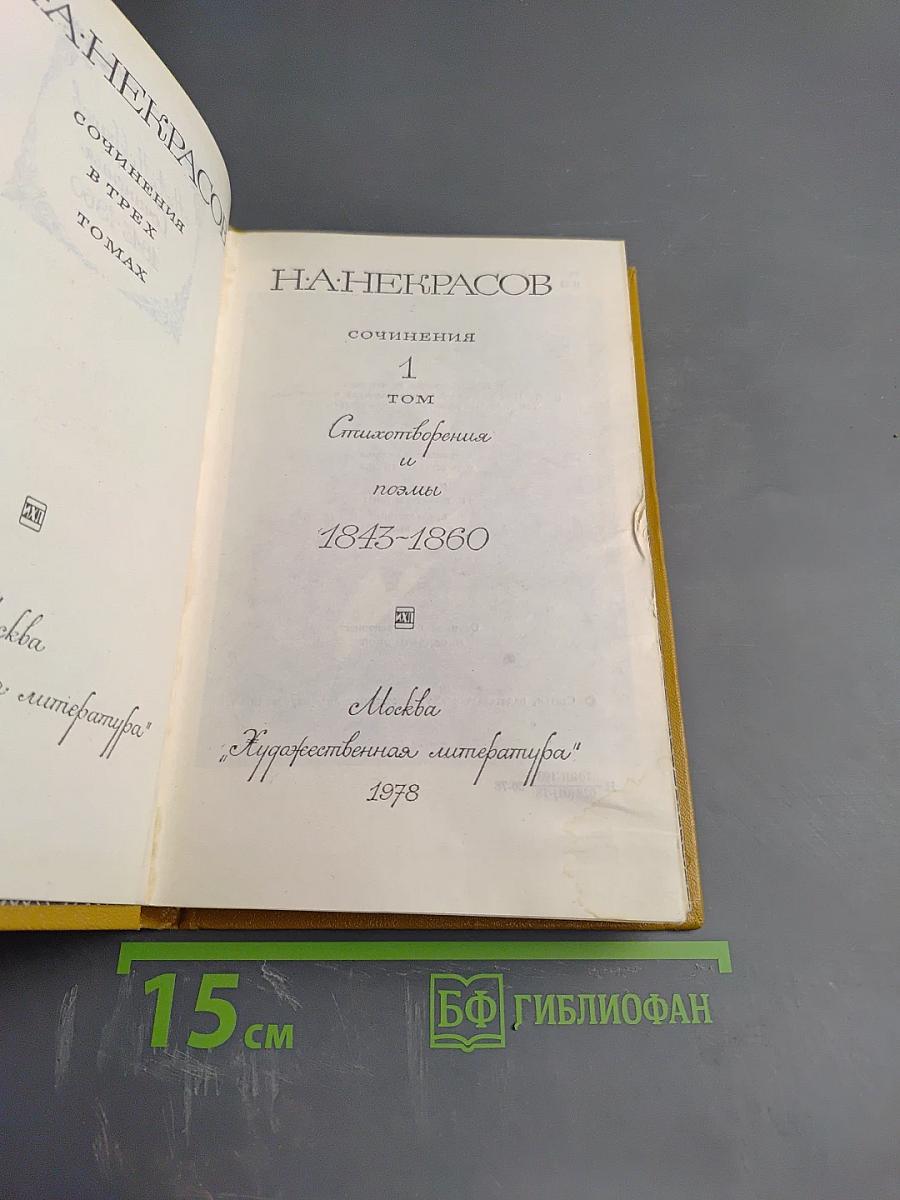 Н·А·НЕКРАСОВ
СОЧИНЕНИЯ
В ТРЕХ
ТОМАХ
литература"
Н·А·НЕКРАСОВ
СОЧИНЕНИЯ
1
ТОМ
Стихотворения
и
поэмы
1843~1860
Москва
„Художественная литература"
1978
15 см
БФ ГИБЛИОФАН